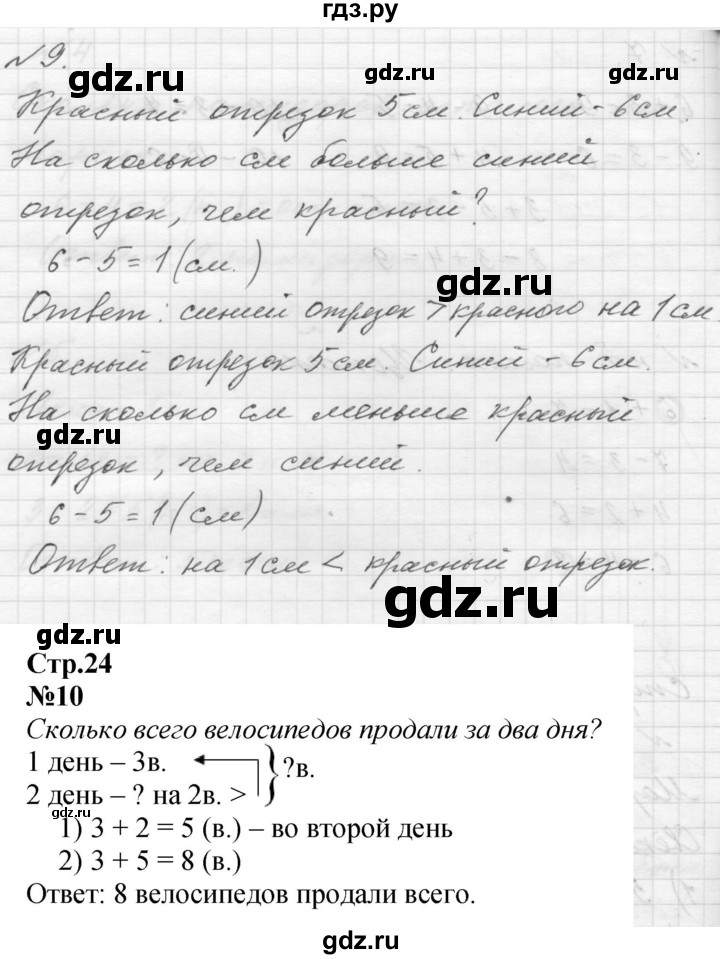 гдз.ру
№9.
gdz.ru
gdz.ru
Красный отрезок 5 см. Синий - 6 см.
На сколько см больше синий
gdz.ru
отрезок, чем красный?
6 - 5 = 1 (см.)
gdz.ru
Ответ: синий отрезок > красного на 1 см.
Красный отрезок 5 см. Синий - 6 см.
gdz.ru
На сколько см меньше красный
gdz.ru
отрезок, чем синий.
6 - 5 = 1 (см)
Ответ: на 1 см < красный отрезок.
gdz.ru
gdz.ru
Стр.24
№10
Сколько всего велосипедов продали за два дня?
1 день – 3в.
?в.
2 день – ? на 2в. >
gdz.ru
1) 3 + 2 = 5 (в.) – во второй день
2) 3 + 5 = 8 (в.)
gdz.ru
Ответ: 8 велосипедов продали всего.
gdz.ru
gdz.ru